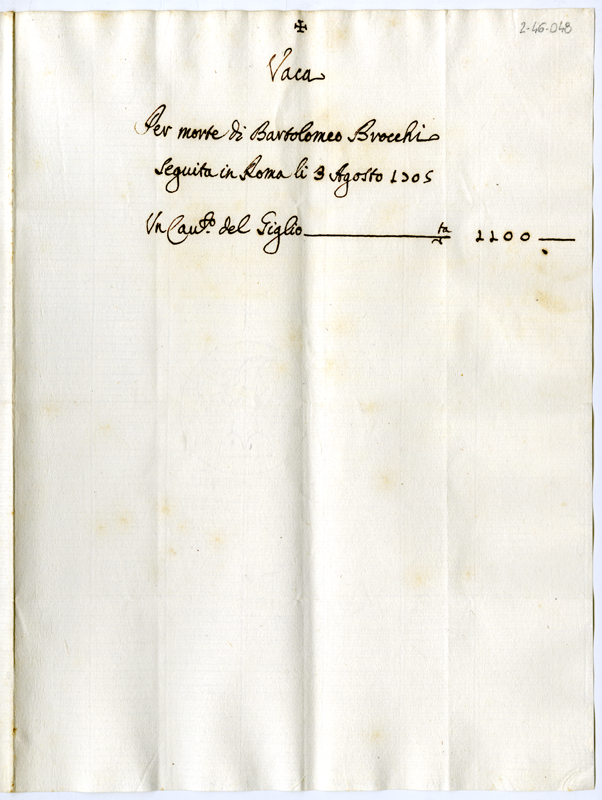 ✠
2-46-048
Vaca
Per morte di Bartolomeo Brocchi
seguita in Roma li 3 Agosto 1705
Un Cau.to del Giglio ta 1100